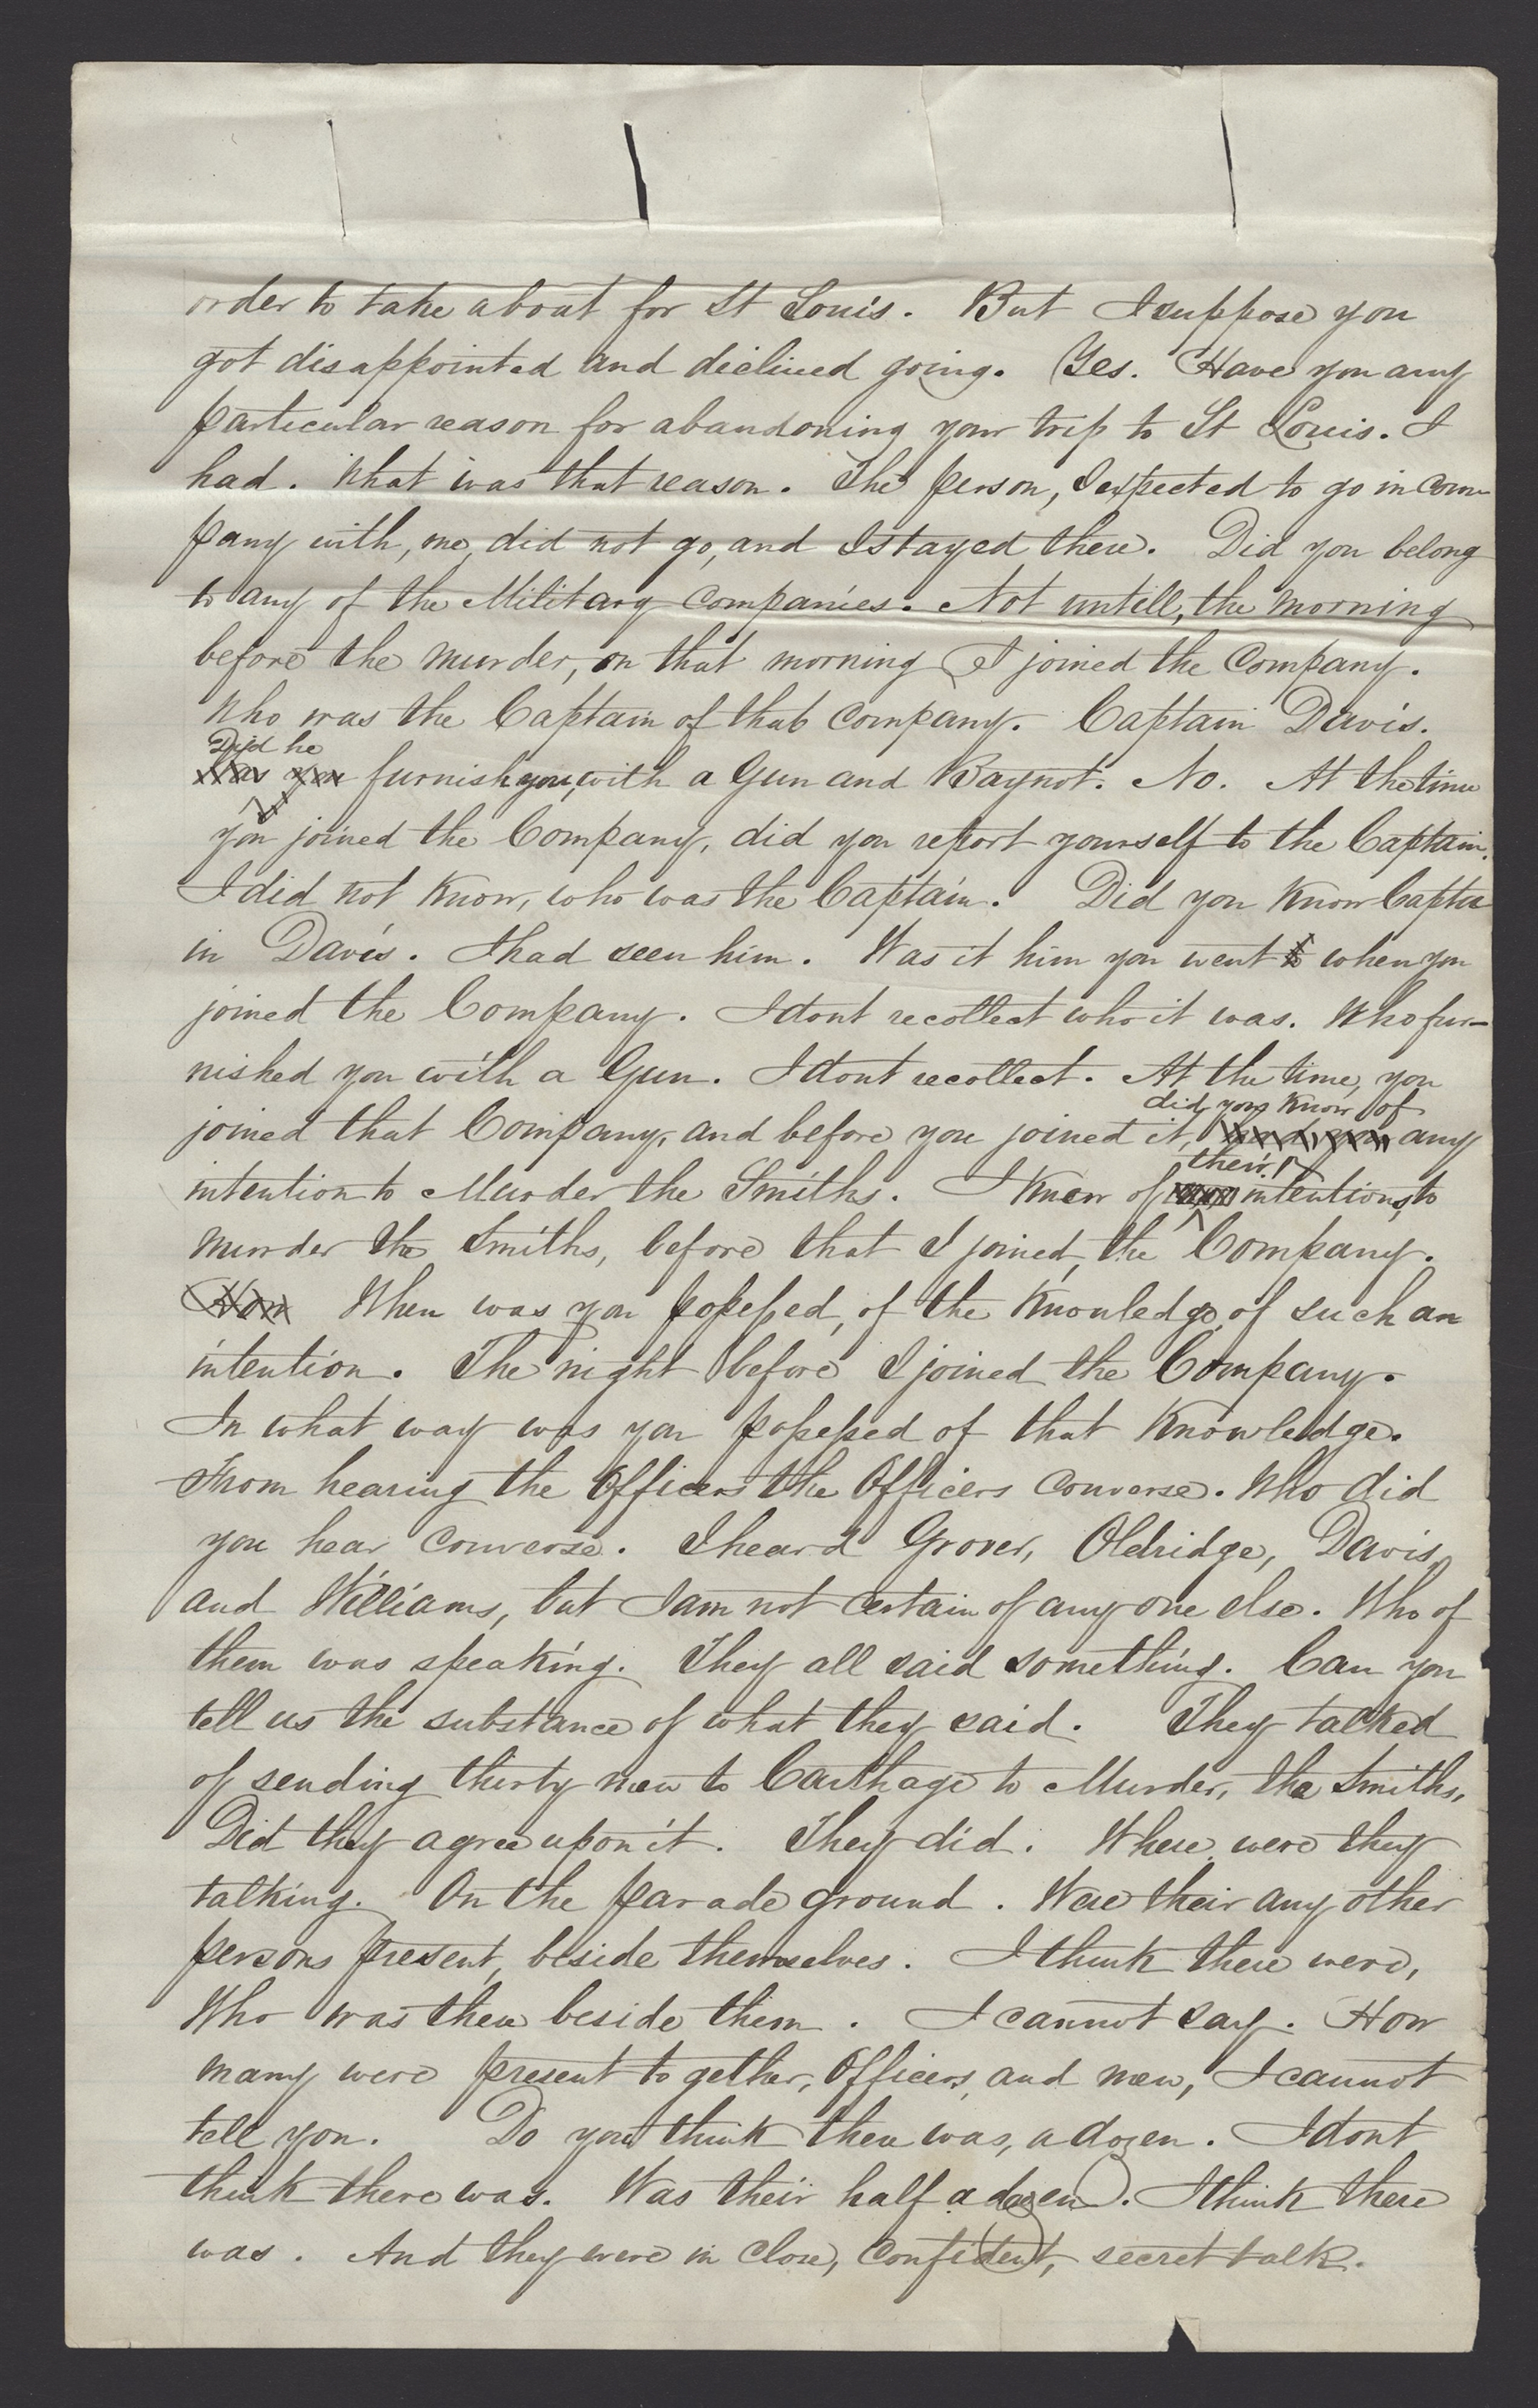 order to take aboat for St Louis. But I suppose you
got disappointed and declined going. Yes. Have you any
particular reason for abandoning your trip to St Louis. I
had. What was that reason. The person, I expected to go in com-
pany with, me, did not go, and I stayed there. Did you belong
to any of the Military Companies. Not untill, the morning
before the murder, on that morning I joined the Company.
Who was the Captain of that Company. Captain Davis.
Did he
furnish you, with a Gun and Baynot. No. At the time
you joined the Company, did you report yourself to the Captain.
I did not know, who was the Captain. Did you know Capta
in Davis. I had seen him. Was it him you went to when you
joined the Company. I dont recollect who it was. Who fur-
nished you with a Gun. I dont recollect. At the time, you
did you know of
joined that Company, and before you joined it, any
their
intention to Murder the Smiths. I knew of intentions, to
murder the Smiths, before that I joined, the Company.
When was you possessed, of the knowledge, of such an
intention. The night before I joined the Company.
In what way was you possessed of that knowledge.
From hearing the Officers the Officers converse. Who did
you hear converse. I heard Grover, Oldridge, Davis,
and Williams, but I am not certain of any one else. Who of
them was speaking. They all said something. Can you
tell us the substance of what they said. They talked
of sending thirty men to Carthage to Murder, the Smiths.
Did they agree upon it. They did. Where were they
talking. On the parade ground. Were their any other
persons present, beside themselves. I think there were,
Who was there beside them. I cannot say. How
many were present together, Officers, and men, I cannot
tell you. Do you think there was, a dozen. I dont
think there was. Was their half a dozen. I think there
was. And they were in close, confident, secret talk.